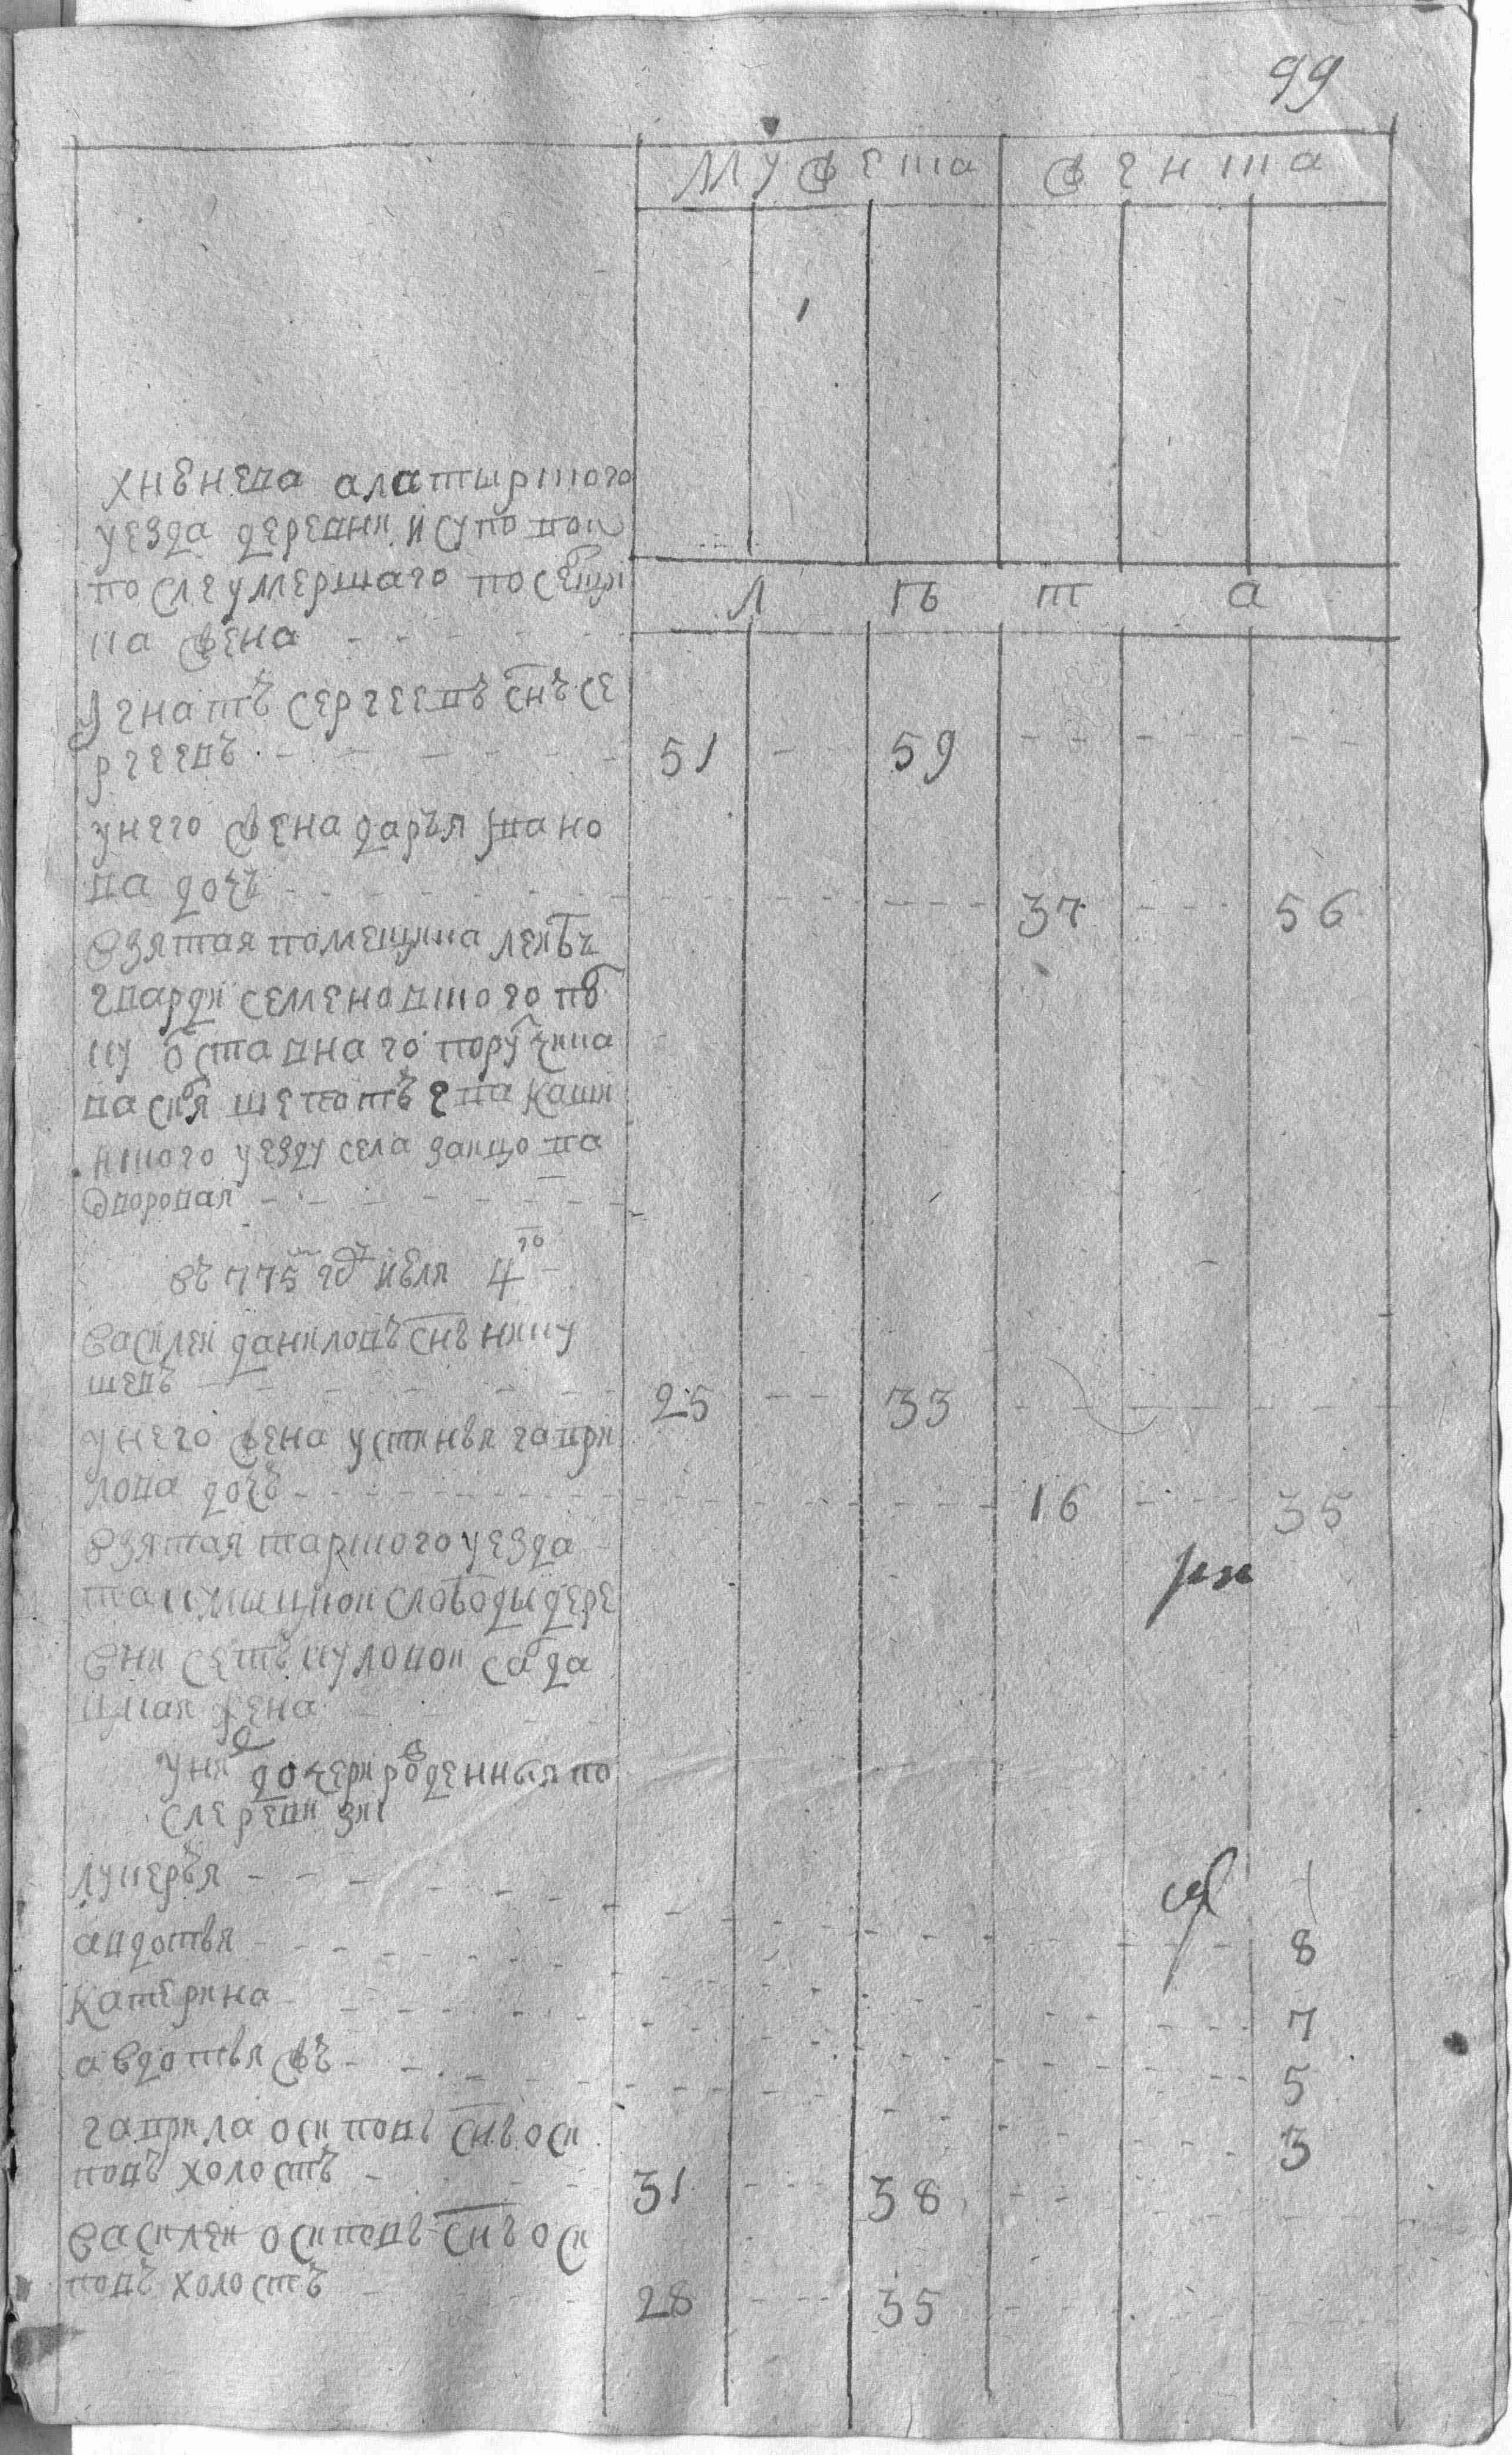 99
Мужеска Женска
хненева алатырского
уезда деревни исуповои
после умершаго посящи
ка жена
Л ѣ т а
Игнатъ сергеевъ снъ се
ргеевъ 51 59
унего жена дарья ива но
ва дочъ 37 56
взятая помещика леибъ
гвардии семеновского пол
ку отставнаго порутчика
василья шепотъева каши
нского уезду села заицова
дворовая
въ 775 году июля 4го
василеи даниловъ снъ нику
шевъ 25 33
унего жена устинья гаври
лова дочъ 16 35
взятая царского уезда
слободы дере
вни сабода
жена
унихъ дочери рожденныя по
сле ревизии
лукеръя 8
авдотья 7
катерина 5
авдотья жъ 3
гаврила осиповъ снъ оси
повъ холостъ 31 38
василеи осиповъ снъ оси
повъ холостъ 28 35